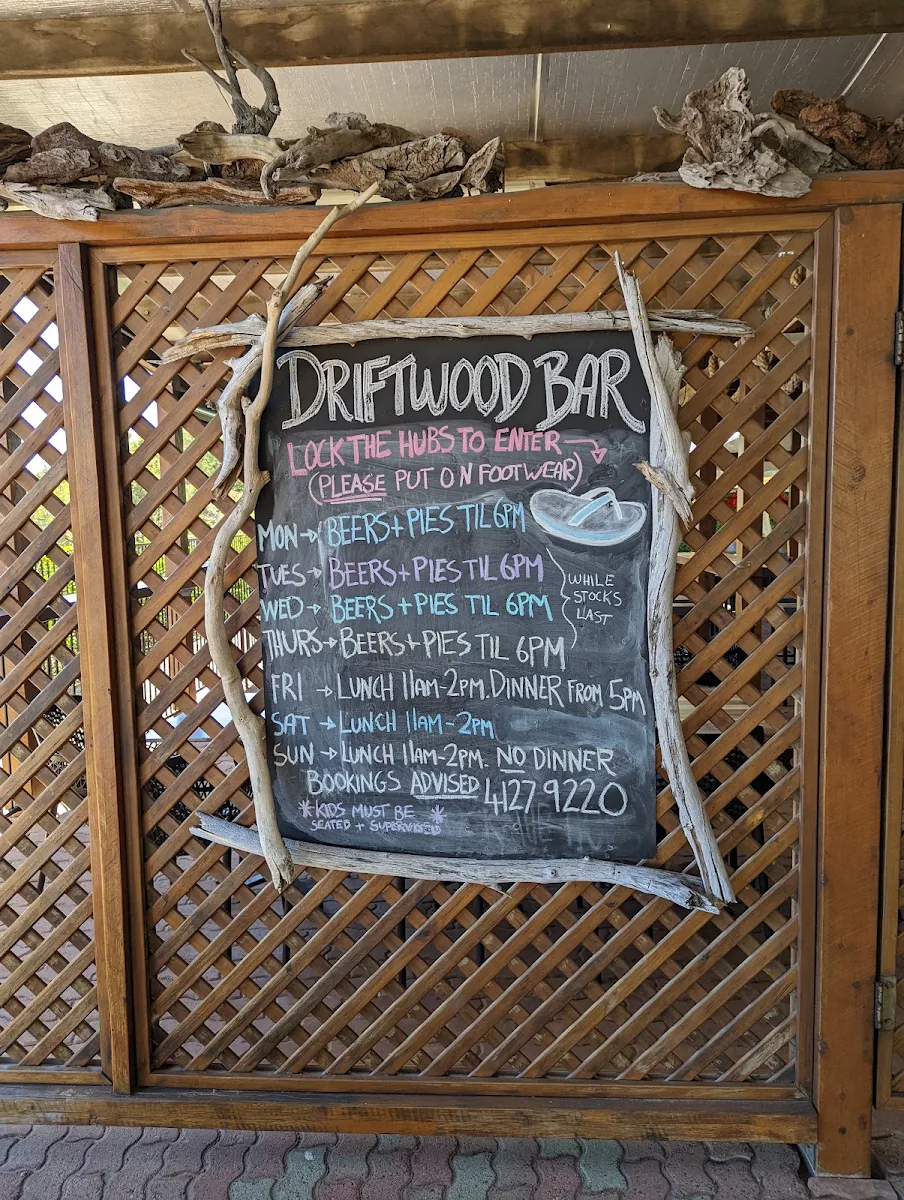 DRIFTWOOD BAR
LOCK THE HUBS TO ENTER
(PLEASE PUT ON FOOTWEAR)
MON → BEERS + PIES TIL 6PM
TUES → BEERS + PIES TIL 6PM
WED → BEERS + PIES TIL 6PM
THURS → BEERS + PIES TIL 6PM
WHILE
STOCKS
LAST
FRI → LUNCH 11AM-2PM. DINNER FROM 5PM
SAT → LUNCH 11AM-2PM
SUN → LUNCH 11AM-2PM. NO DINNER
BOOKINGS ADVISED 4127 9220
*KIDS MUST BE *
SEATED + SUPERVISED